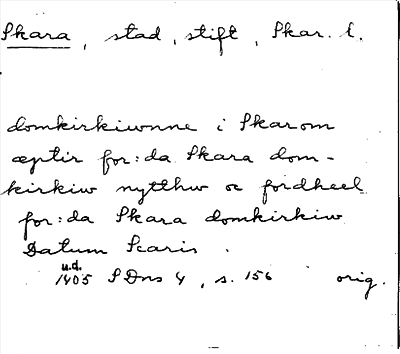 Skara, stad, stift, Skar. l.
domkirkiwnne i Skarom
æptir for:da Skara dom-
kirkiw nytthw oc fordheel
for:da Skara domkirkiw
Datum Scaris.
u.d.
1405 SDns 4, s. 156 orig.